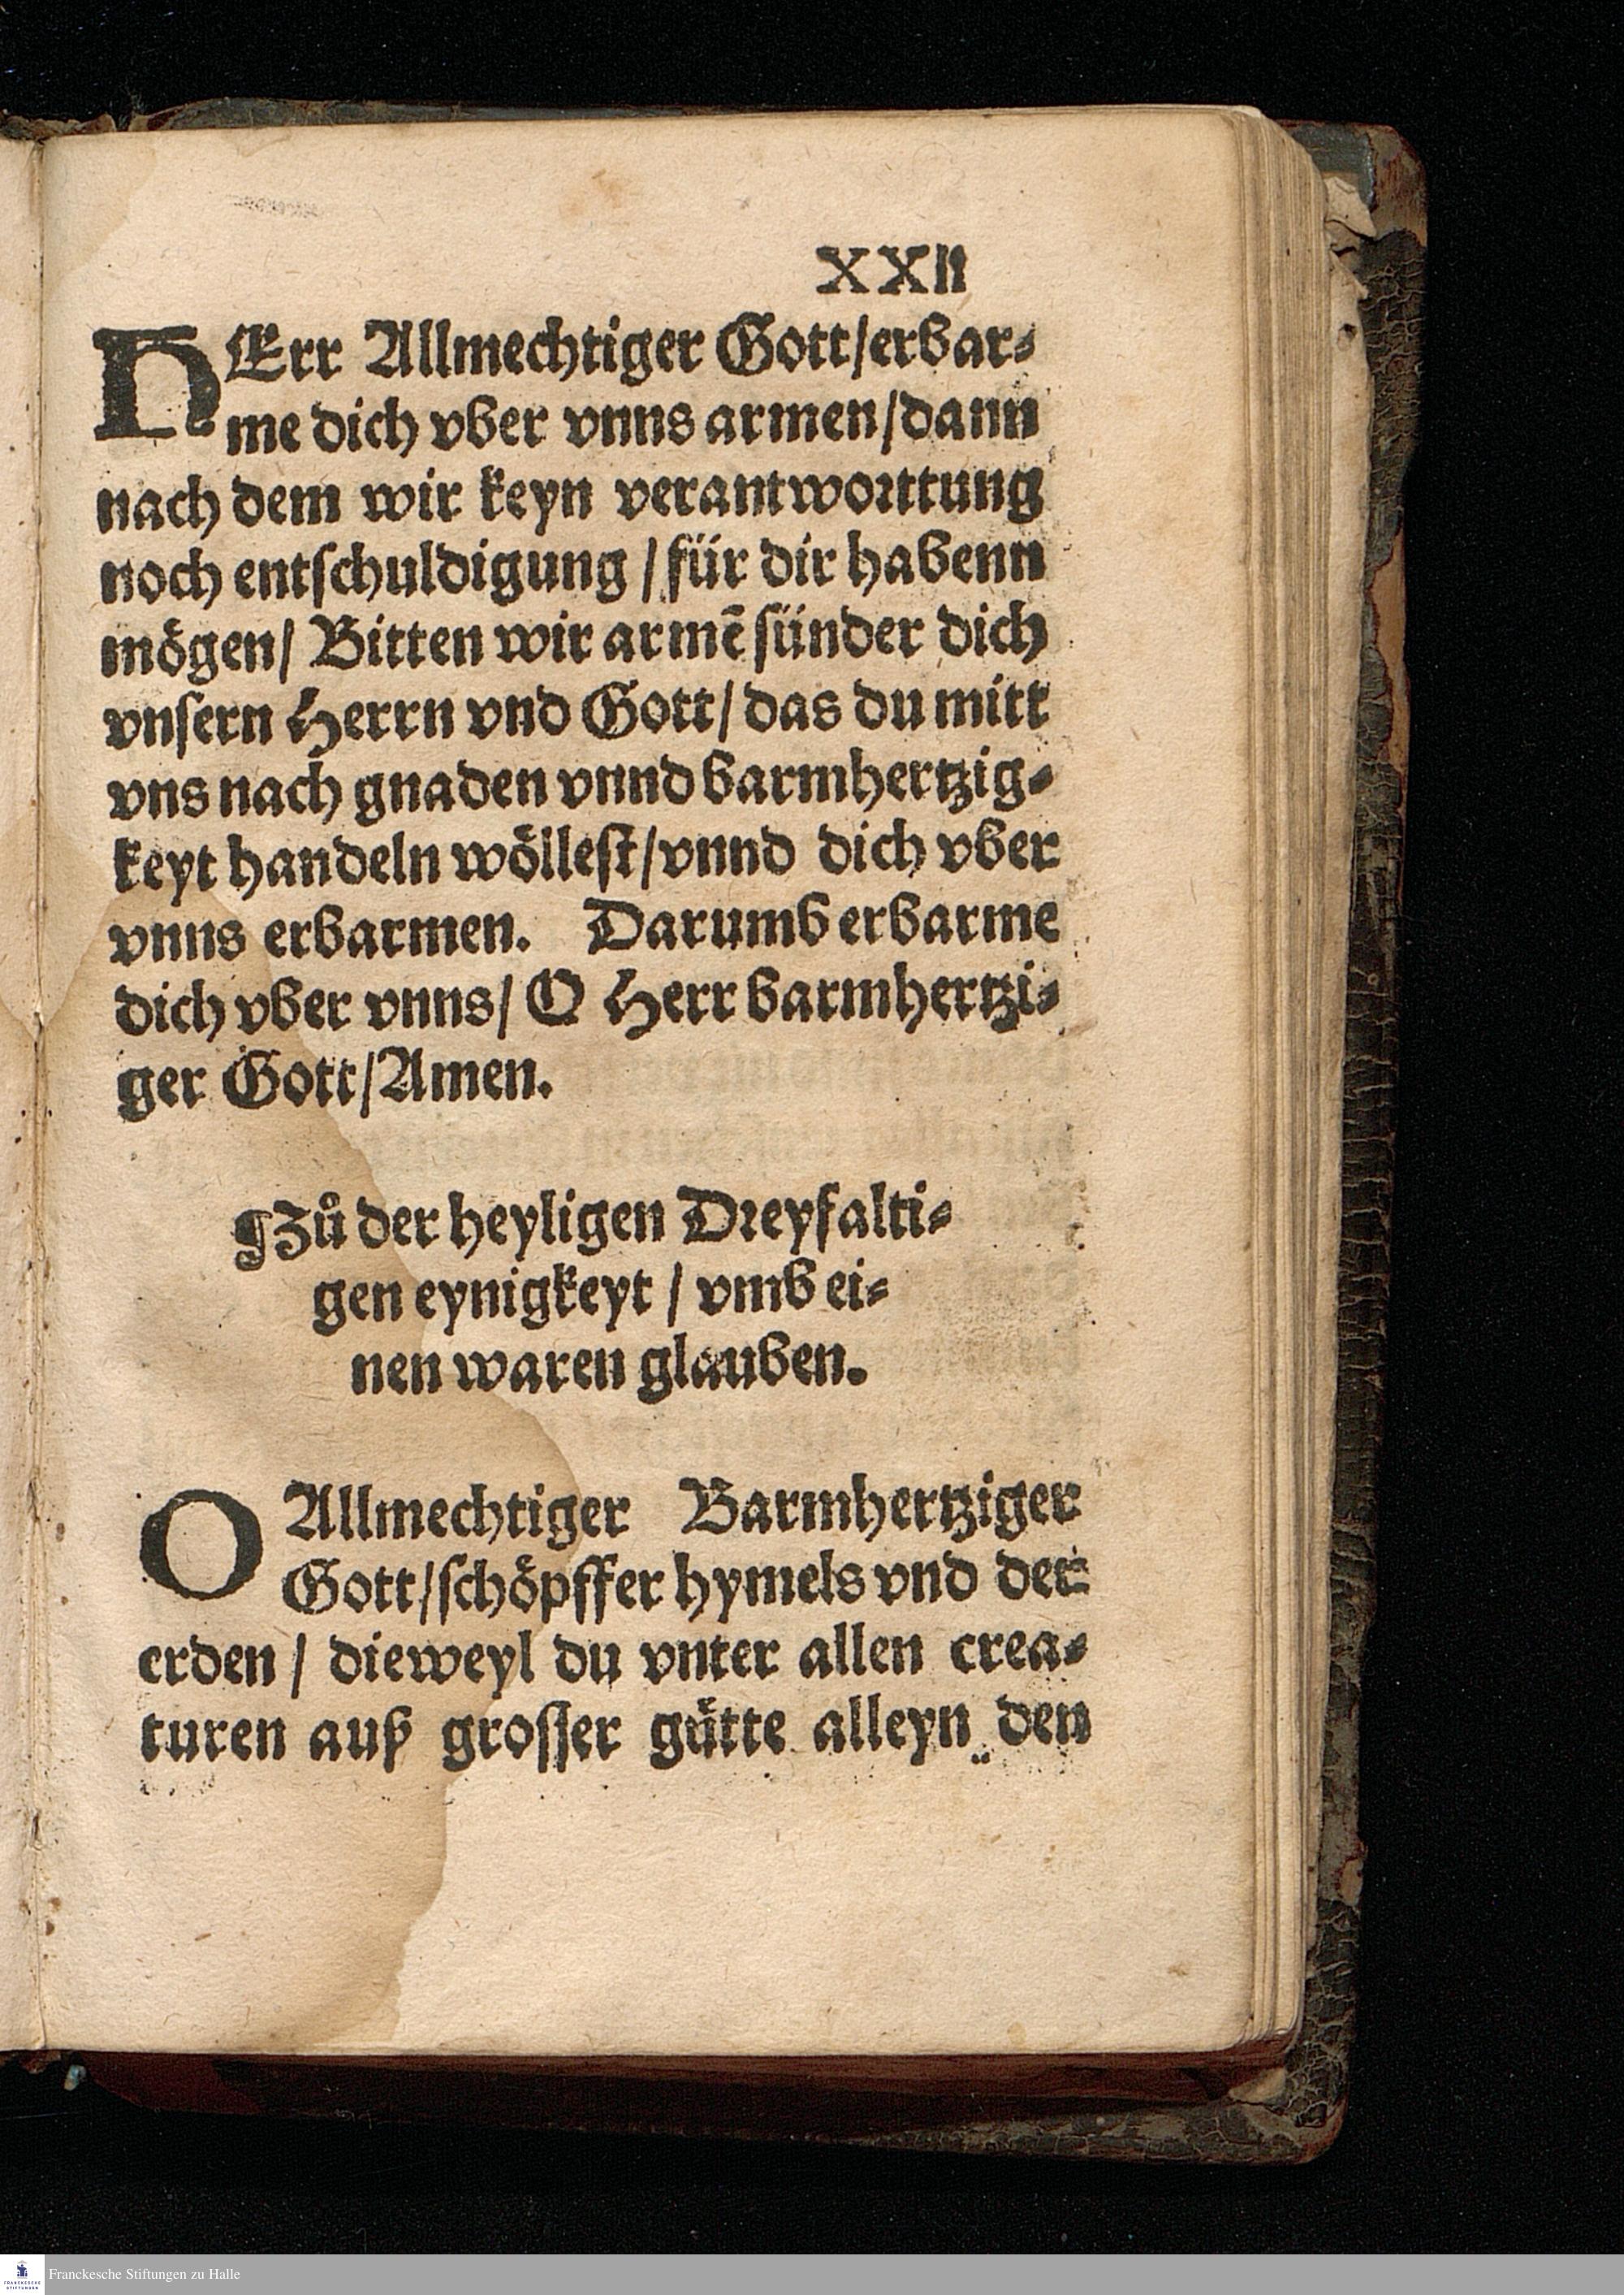 XXII
HErr Allmechtiger Gott/erbar⸗
me dich vber vnns armen/dann
nach dem wir keyn verantworttung
noch entſchuldigung / für dir habenn
mögen/ Bitten wir armē ſünder dich
vnſern Herrn vnd Gott/ das du mitt
vns nach gnaden vnnd barmhertzig⸗
keyt handeln wölleſt/vnnd dich vber
vnns erbarmen. Darumb erbarme
dich vber vnns/ O Herr barmhertzi⸗
ger Gott/Amen.
¶Zů der heyligen Dreyfalti⸗
gen eynigkeyt / vmb ei⸗
nen waren glauben.
O Allmechtiger Barmhertziger
Gott/ſchöpffer hymels vnd der
erden / dieweyl du vnter allen crea⸗
turen auß groſſer gütte alleyn den
Franckesche Stiftungen zu Halle